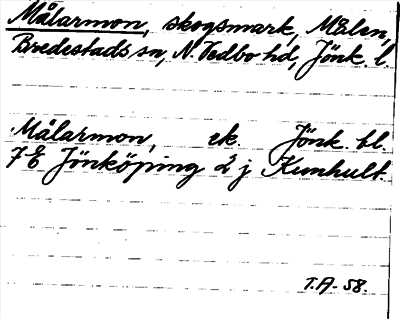 Målarmon, skogsmark, Målen,
Bredestads sn, N. Vedbo hd, Jönk. l.
Målarmon, ek. Jönk. bl.
7 E Jönköping 2 j Kunhult.
T.A-58.